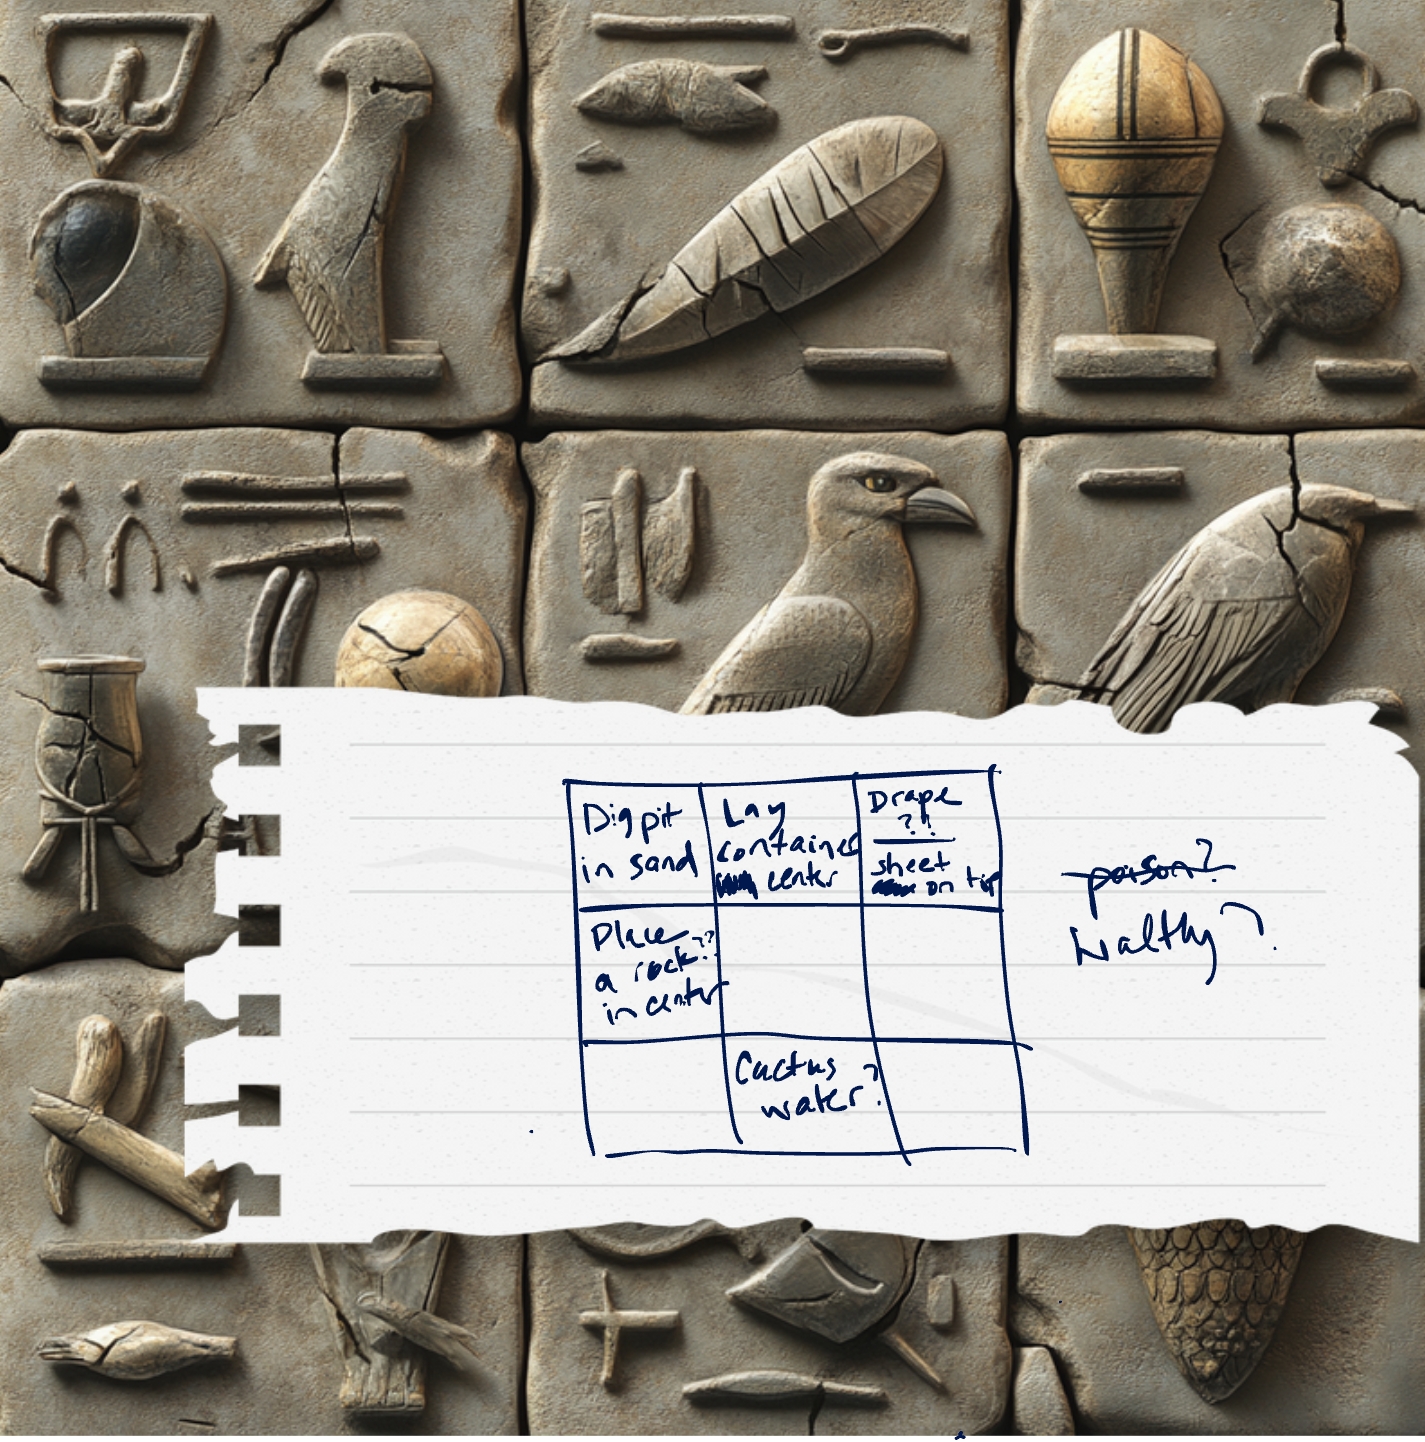 Dig pit
in sand
Lay
container
center
Drape
??
sheet
on top
Place ??
a rock
in center
Cactus
water?
poison?